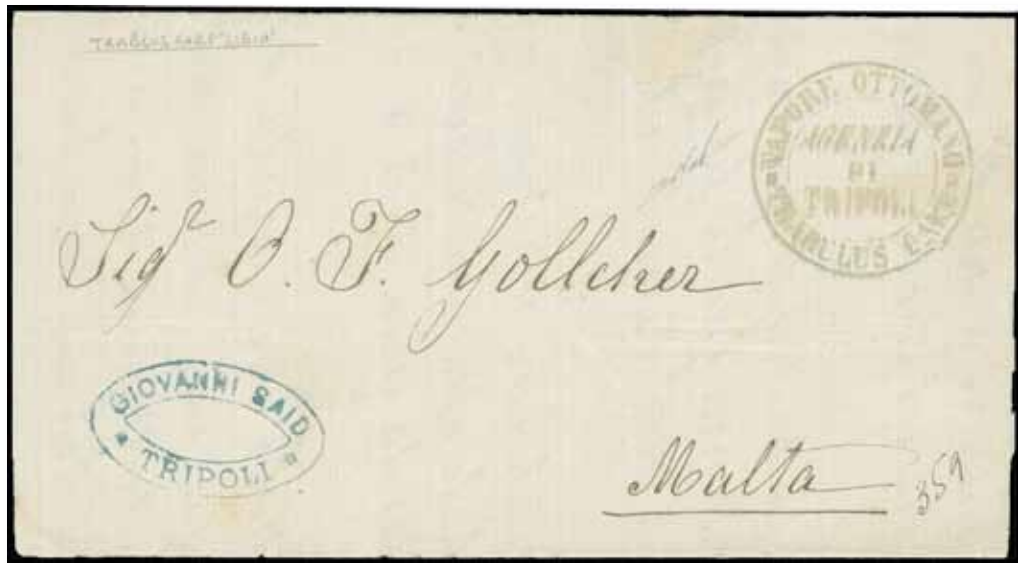 TRABLUS GARB "LIBIA"
VAPORE OTTOMANO
AGENZIA
DI
TRIPOLI
TRABULUS GARB
Sigr O. F. Gollcher
GIOVANNI SAID
TRIPOLI
Malta
359